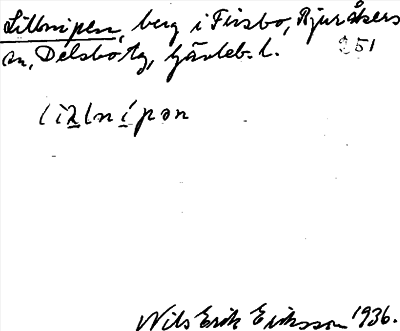 Lillnipen, berg i Firsbo, Bjuråkers
sn, Delsbo tg, Gävleb. l.
251
Nils Erik Eriksson 1936.